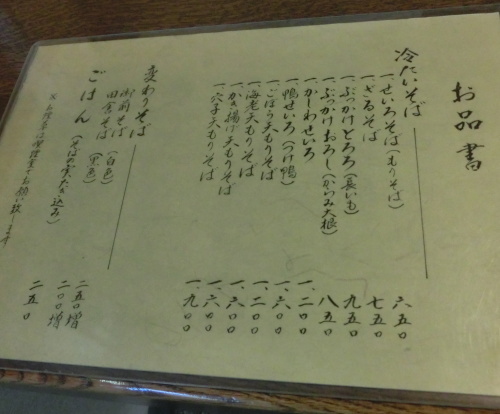 お品書
冷たいそば
一せいろそば(もりそば) 六五〇
一ざるそば 七五〇
一ぶっかけとろろ(長いも) 九五〇
一ぶっかけおろし(からみ大根) 八五〇
一かしわせいろ 一、二〇〇
一鴨せいろ(つけ鴨) 一、六〇〇
一ごぼう天もりそば 一、二〇〇
一海老天もりそば 一、六〇〇
一かき揚げ天もりそば 一、六〇〇
一穴子天もりそば 一、九〇〇
変わりそば
御前そば(白色) 二五〇増
田舎そば(黒色) 二〇〇増
ごはん(そばの実たき込み) 二五〇
お願い致します